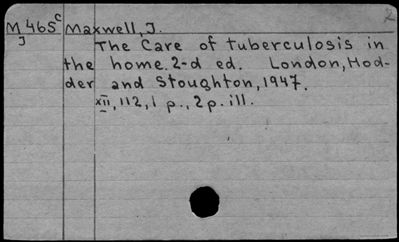 M 465 c Maxwell, J.
J The Care of tuberculosis in
the home. 2-d ed. London, Hod-
der and Stoughton, 1947.
xii, 112, 1 p., 2 p. ill.